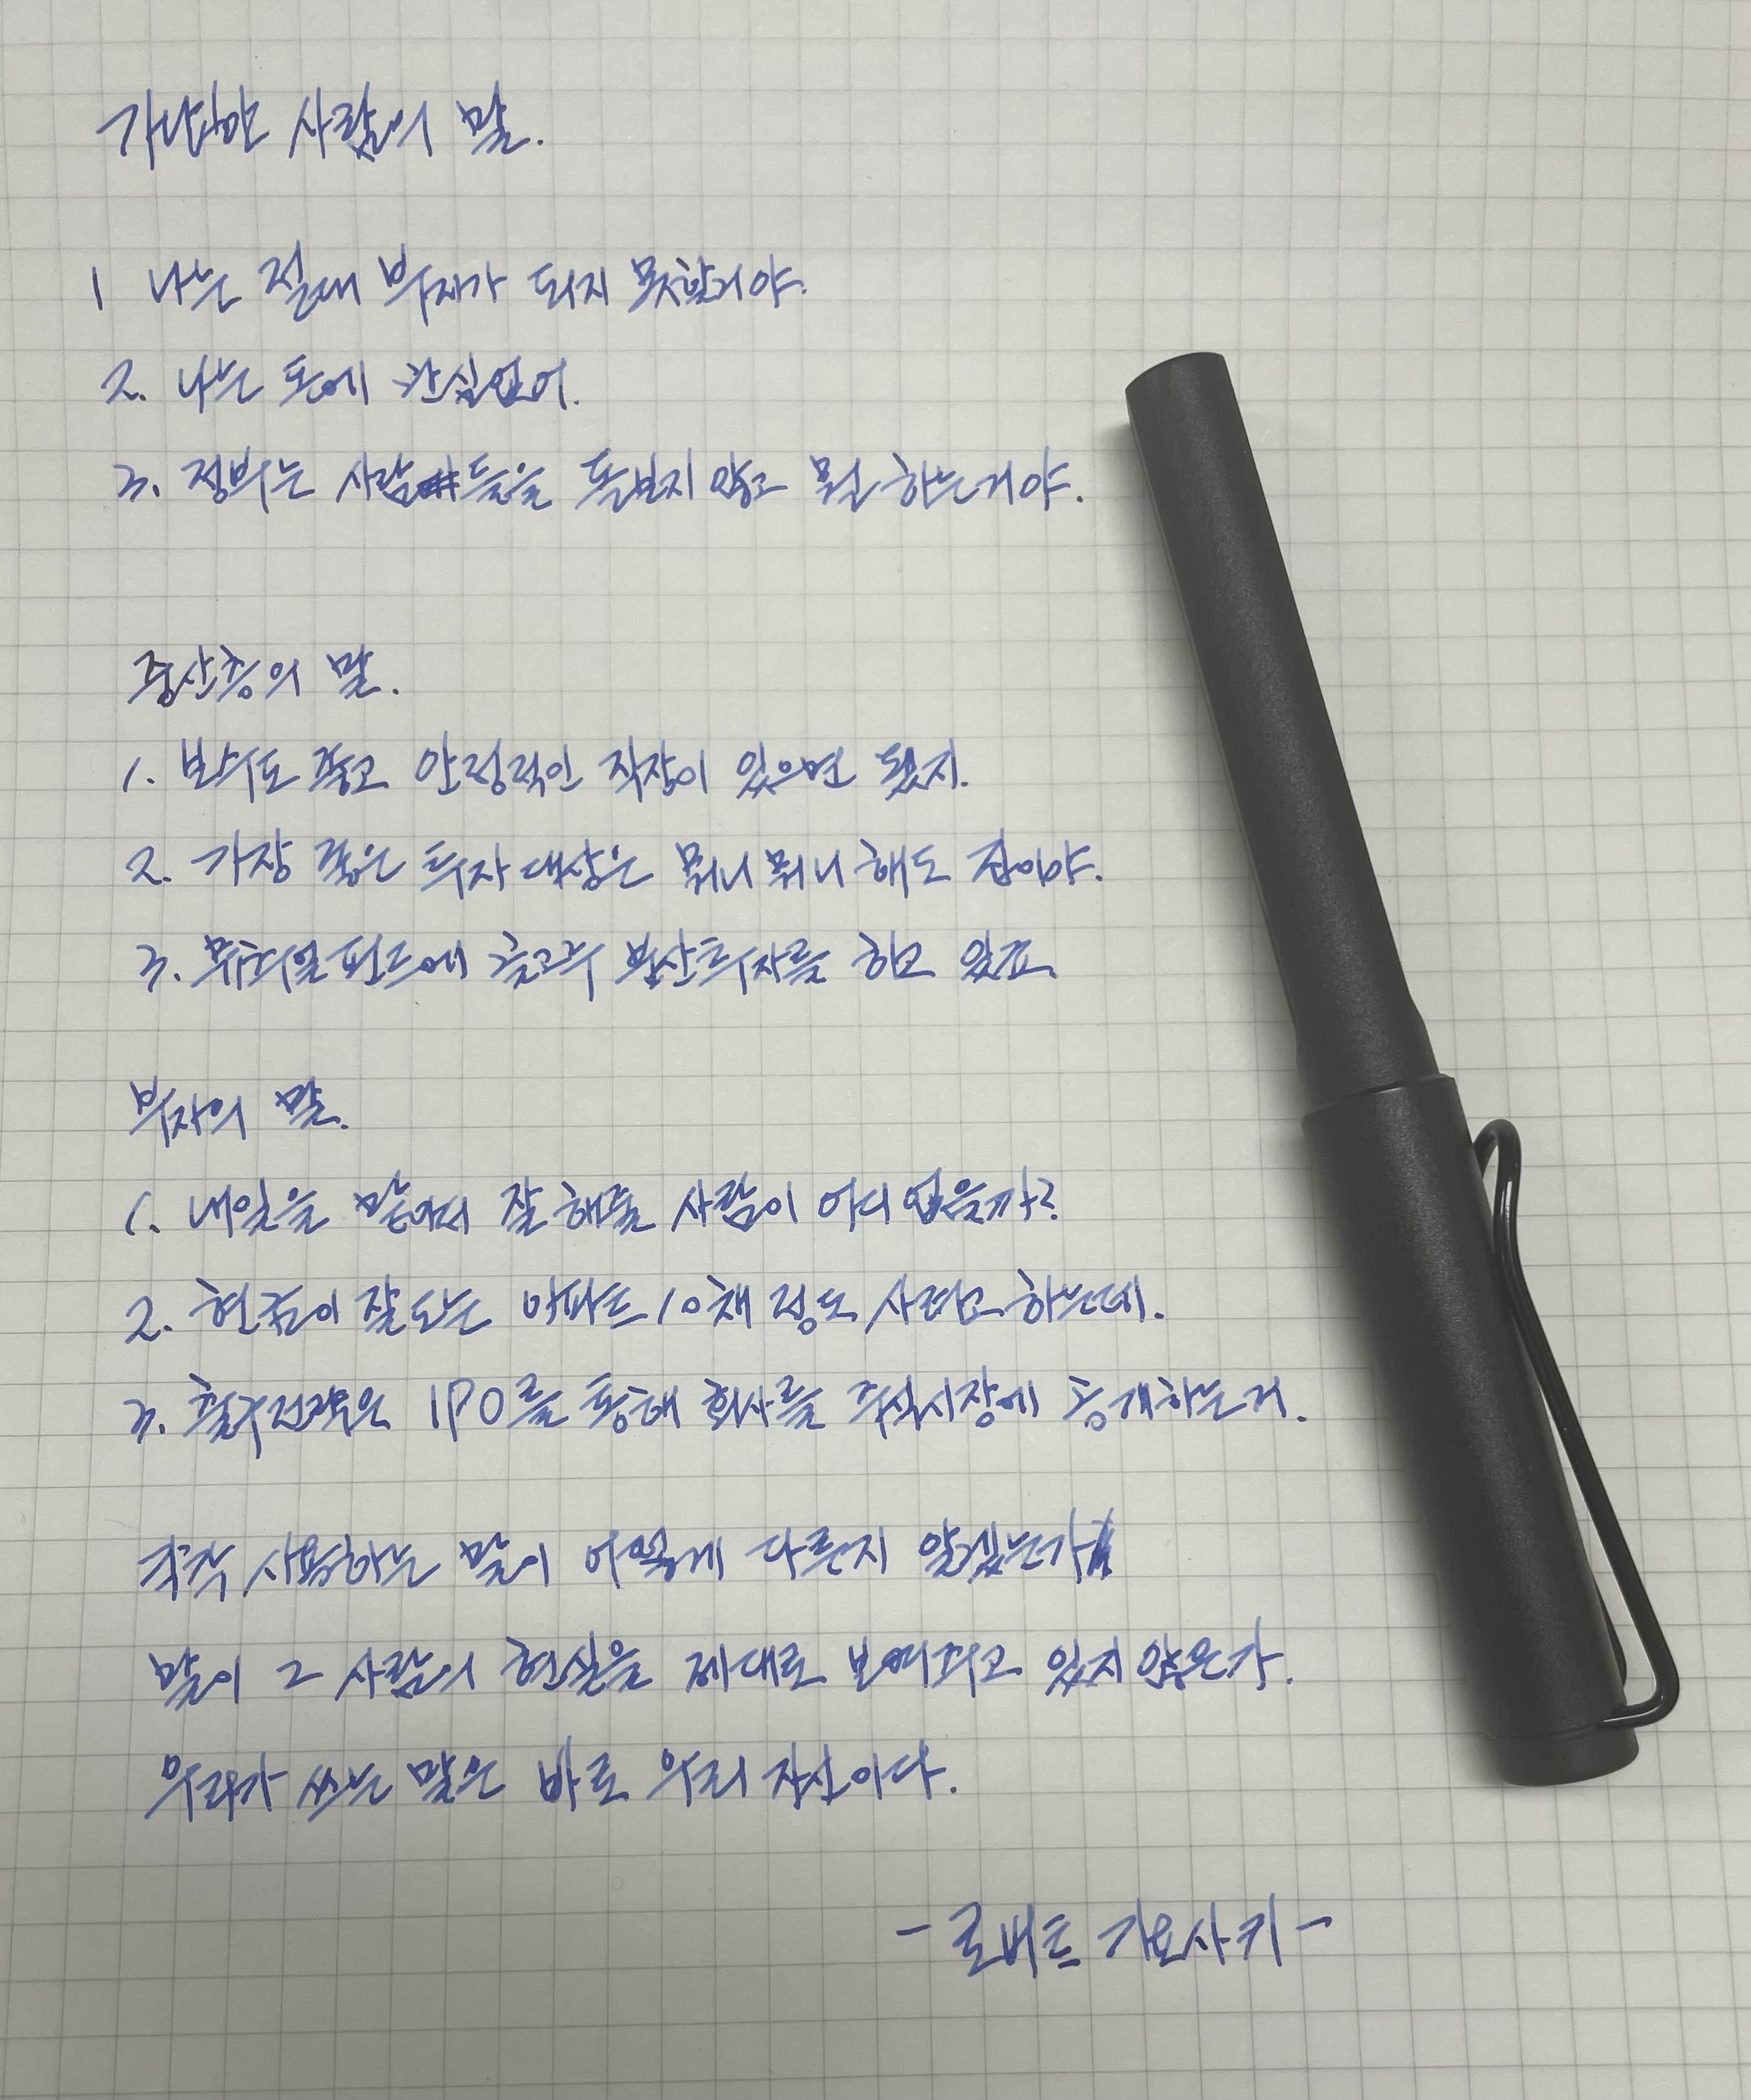 가난한 사람의 말.
1 나는 절대 부자가 되지 못할거야.
2. 나는 돈에 관심없어.
3. 정부는 사람들을 돌보지 않고 뭘 하는거야.
중산층의 말.
1. 보수도 좋고 안정적인 직장이 있으면 됐지.
2. 가장 좋은 투자 대상은 뭐니 뭐니 해도 집이야.
3. 뮤추얼 펀드에 골고루 분산투자를 하고 있죠.
부자의 말.
1. 내일을 맡아서 잘 해줄 사람이 어디 없을까?
2. 현금이 잘 도는 아파트 10채 정도 사려고 하는데.
3. 출구전략은 IPO를 통해 회사를 주식시장에 공개하는거.
각각 사용하는 말이 어떻게 다른지 알겠는가
말이 그 사람의 현실을 제대로 보여주고 있지 않은가.
우리가 쓰는 말은 바로 우리 자신이다.
- 로버트 기요사키 -